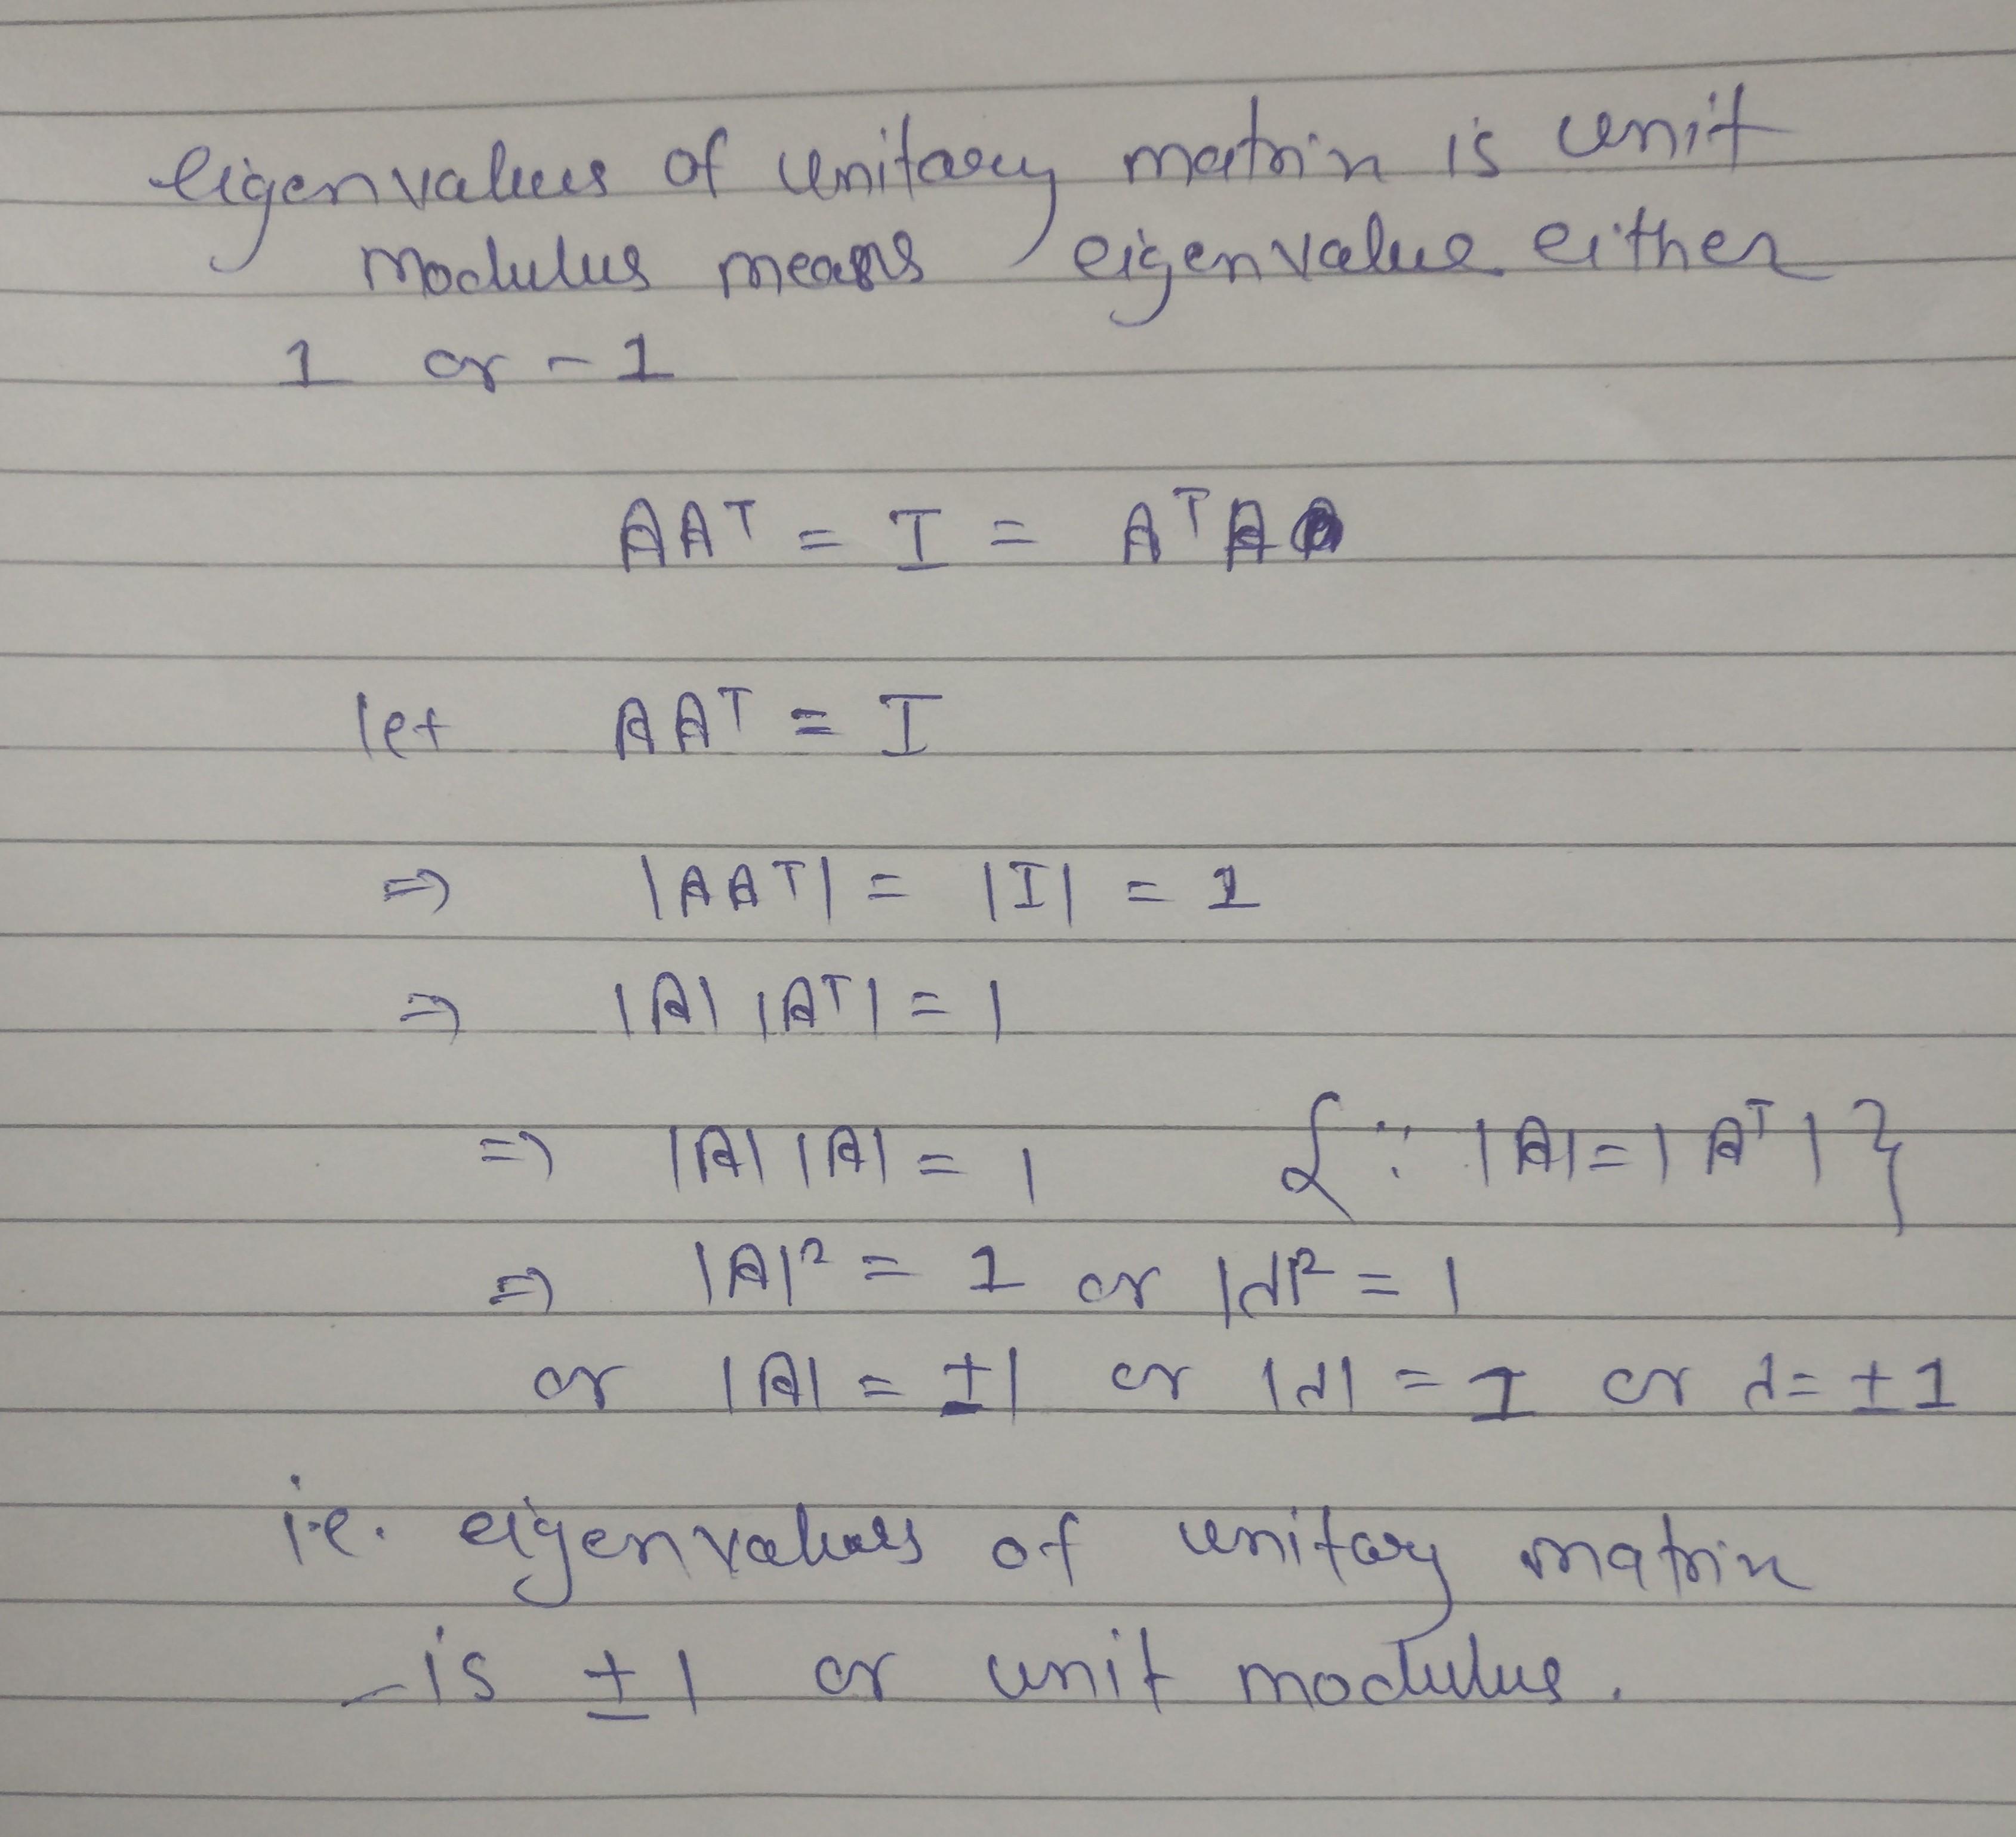 eigenvalues of unitary matrix is unit
modulus means eigenvalue either
1 or -1
AAᵀ = I = AᵀA
let AAᵀ = I
⇒ |AAᵀ| = |I| = 1
⇒ |A| |Aᵀ| = 1
⇒ |A| |A| = 1 {∵ |A| = |Aᵀ|}
⇒ |A|² = 1 or |λ|² = 1
or |A| = ±1 or |λ| = 1 or λ = ±1
i.e. eigenvalues of unitary matrix
is ±1 or unit modulus.